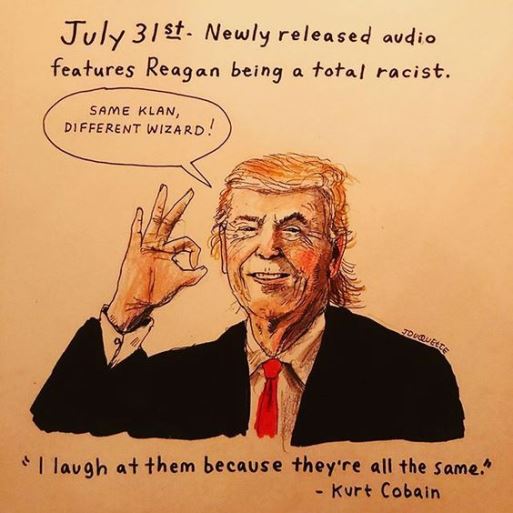 July 31st- Newly released audio
features Reagan being a total racist.
SAME KLAN,
DIFFERENT WIZARD!
JDUQUETTE
"I laugh at them because they're all the same."
- Kurt Cobain